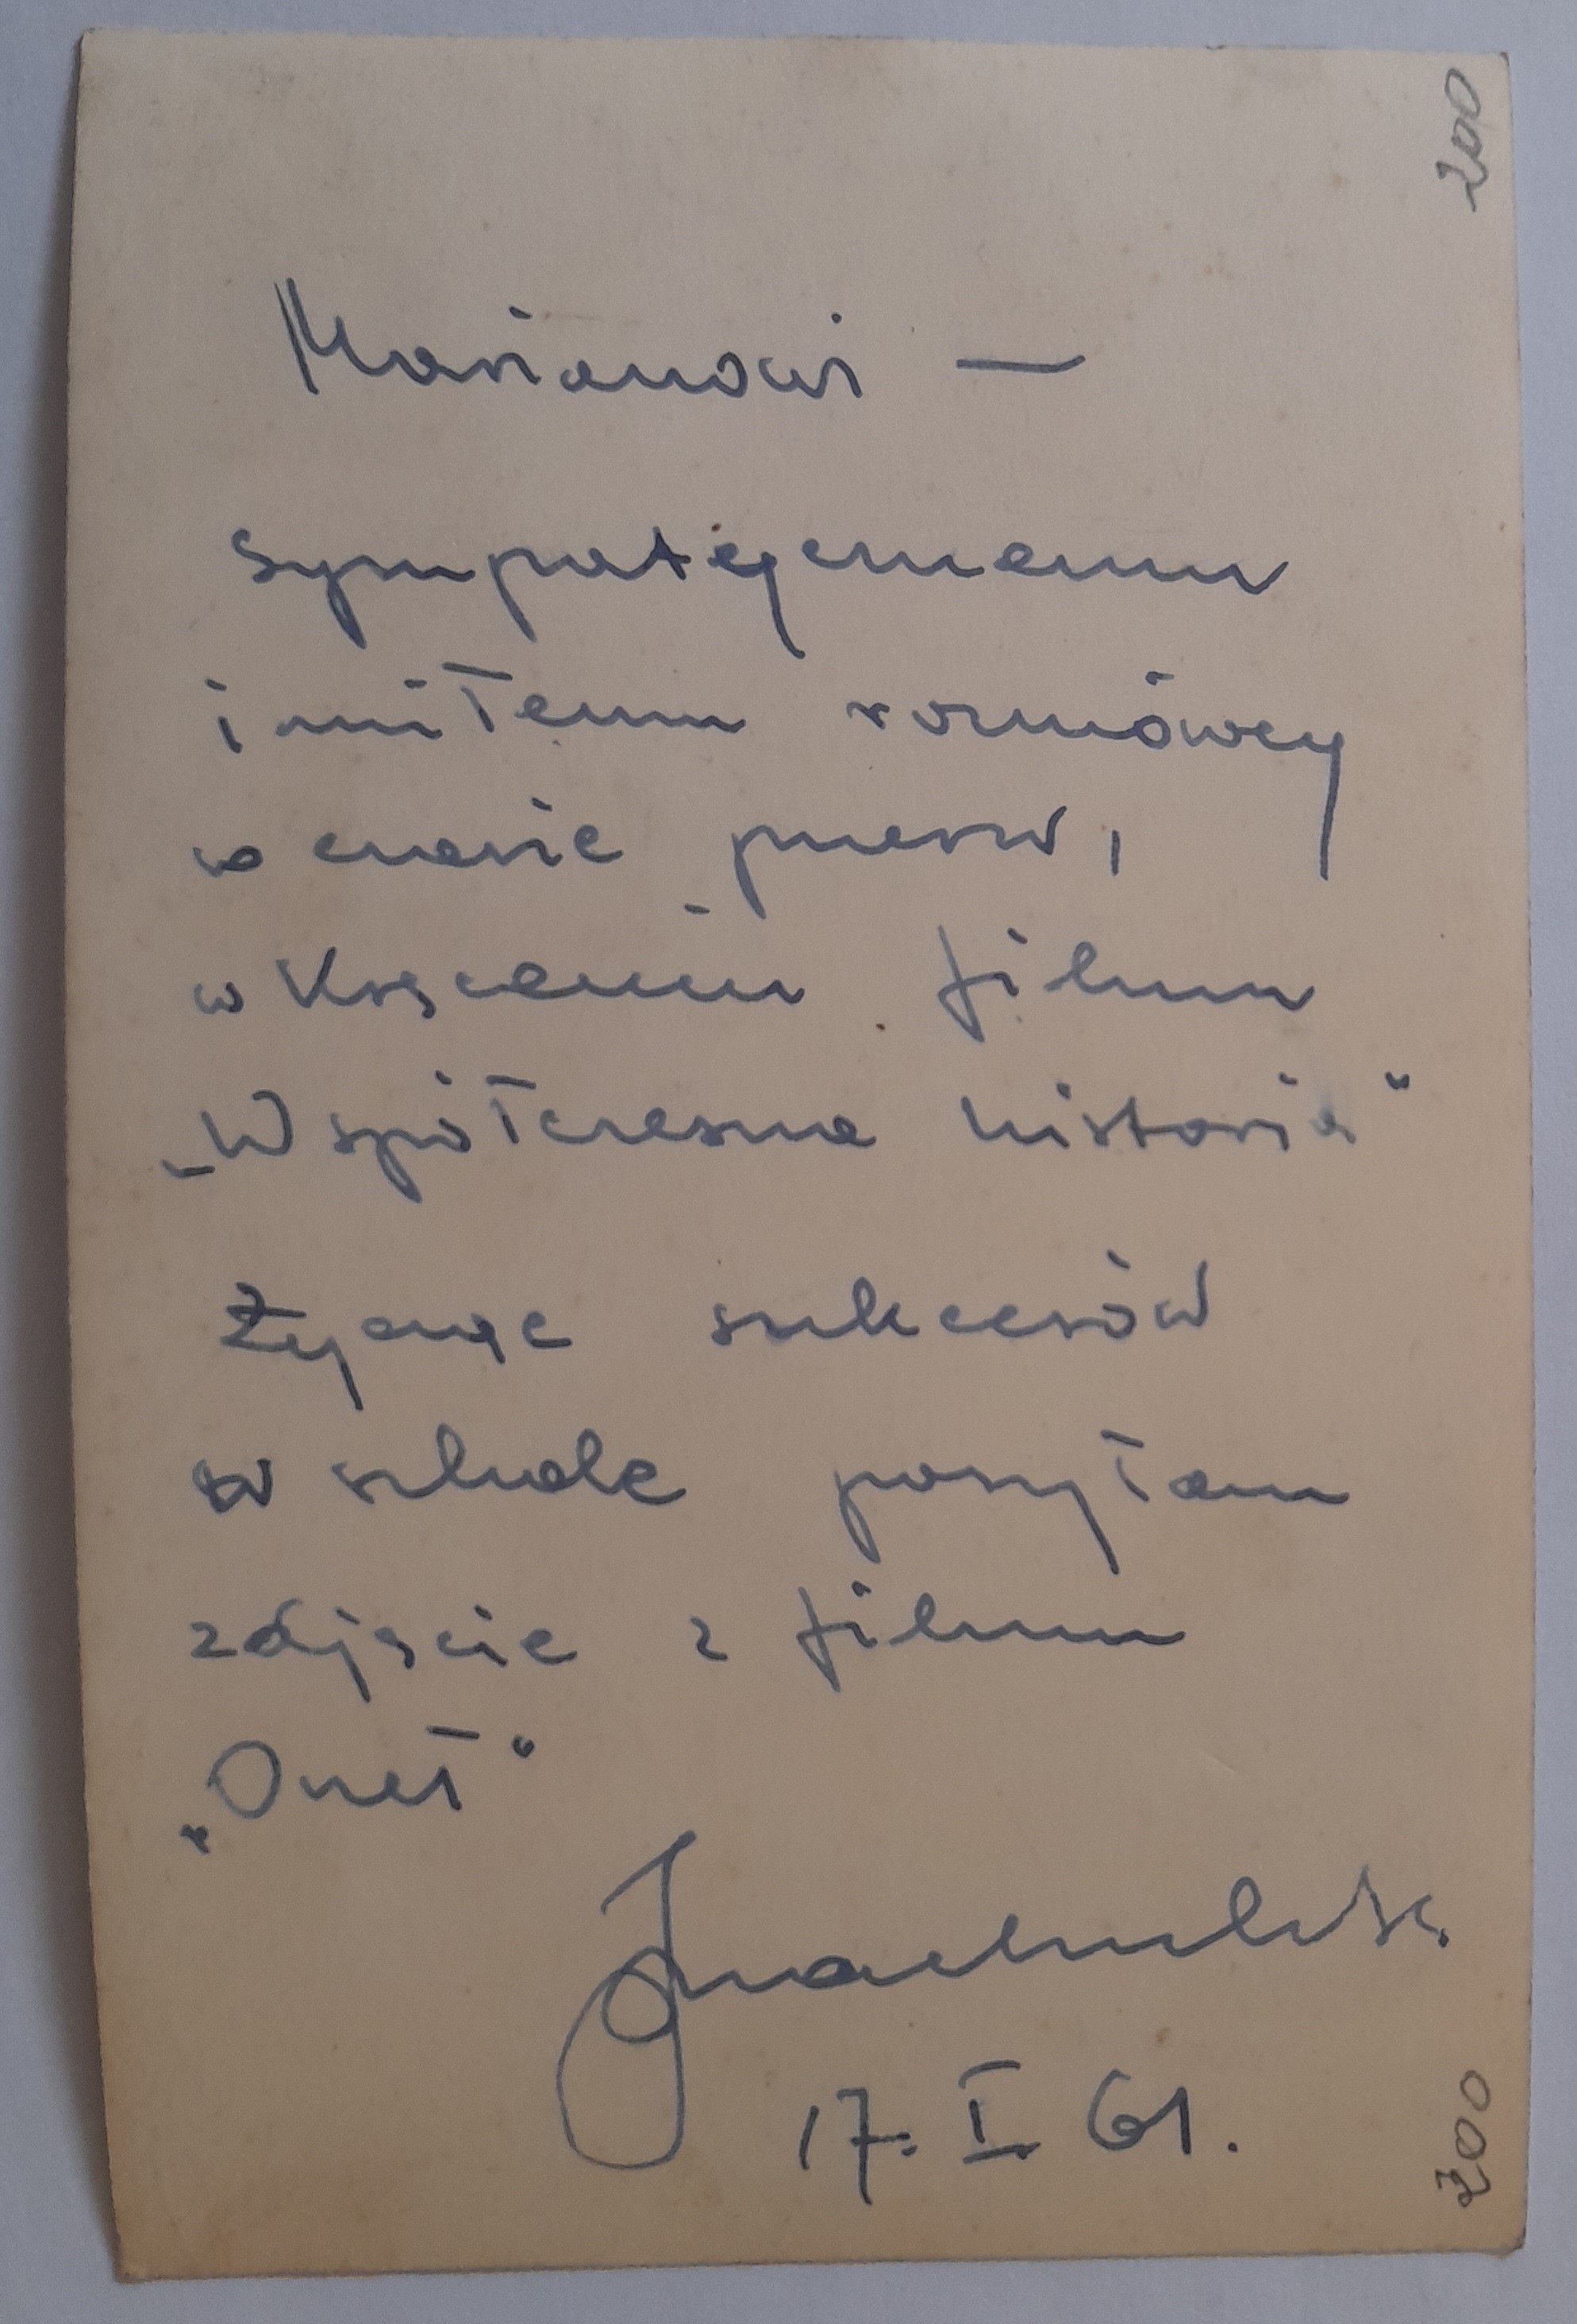 Marianowi —
sympatycznemu
i miłemu rozmówcy
w czasie przerw,
w kręceniu filmu
„Współczesna historia"
Życząc sukcesów
w szkole posyłam
zdjęcie z filmu
„Orzeł"
17. I 61.
200
200